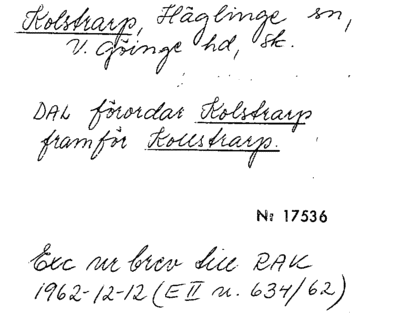 Kolstrarp, Häglinge sn,
V. Göinge hd, Sk.
DAL förordar Kolstrarp
framför Kollstrarp.
Nº 17536
Exc ur brev till RAK
1962-12-12 (E II n. 634/62)